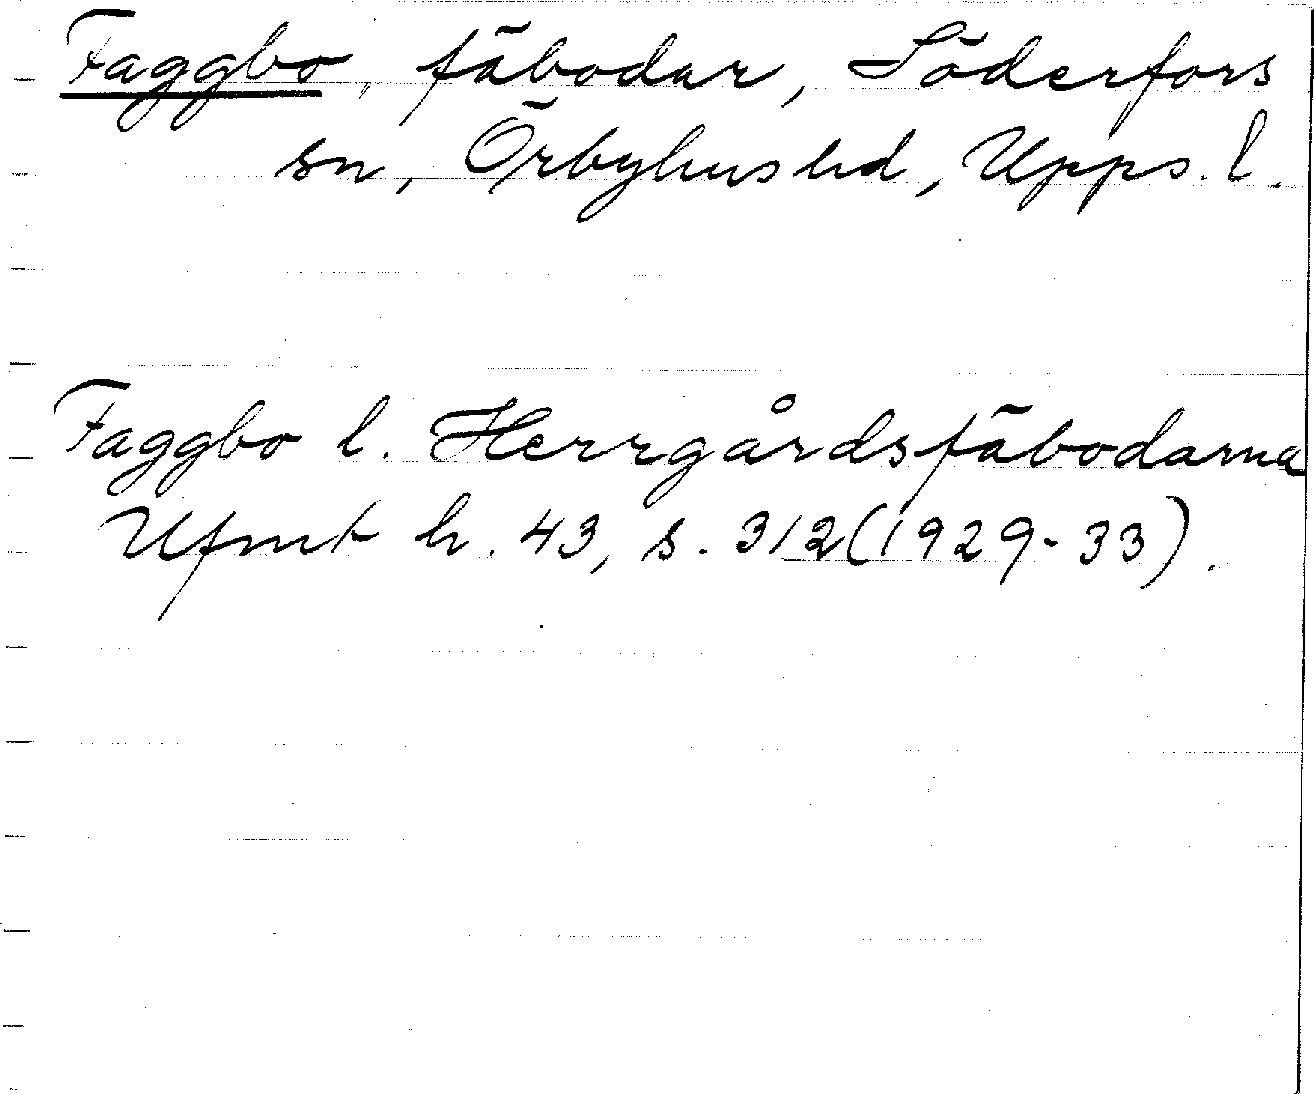 Faggbo, fäbodar, Söderfors
sn, Örbyhus hd, Upps. l.
Faggbo l. Herrgårdsfäbodarna
Ufmt h. 43, s. 312 (1929-33).